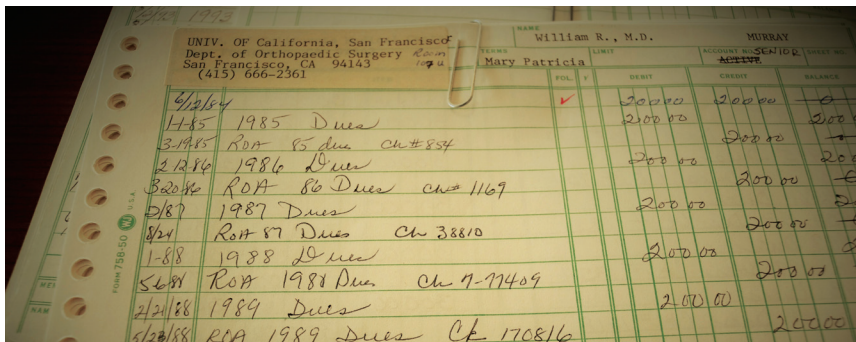 1993
UNIV. OF California, San Francisco
Dept. of Orthopaedic Surgery Room
San Francisco, CA 94143
(415) 666-2361
NAME
William R., M.D. MURRAY
TERMS LIMIT ACCOUNT NO. SENIOR SHEET NO.
Mary Patricia ACTIVE
FOL. ✓ DEBIT CREDIT BALANCE
6/12/84 ✓ 200 00 200 00 0
1-1-85 1985 Dues 200 00 200
3-19-85 ROA 85 dues Ch# 854 200 00
2 12-86 1986 Dues 200 00 200
3-20-86 ROA 86 Dues Ch# 1169 200 00
2/87 1987 Dues 200 00 2
8/24 ROA 87 Dues Ch 38810 200 00
1-88 1988 Dues 200 00
5-6-88 ROA 1988 Dues Ch 7-77409 200 00
2/21/88 1989 Dues 200 00
5/23/88 ROA 1989 Dues Ck 170816 200 00
FORM 758-50 U.S.A.
NAM